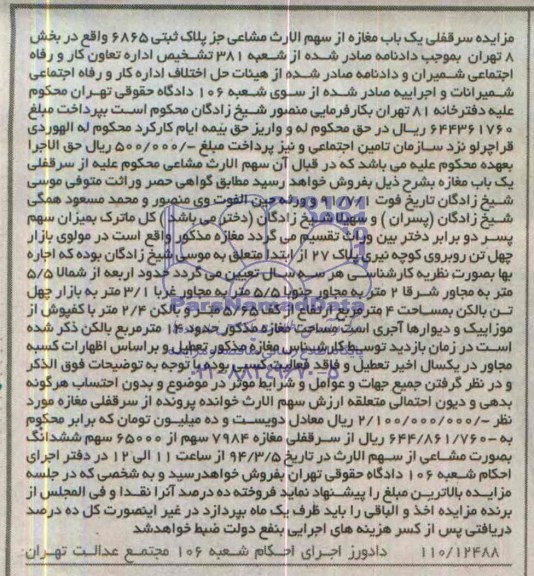 مزایده سرقفلی یک باب مغازه از سهم الارث مشاعی جز پلاک ثبتی ۶۸۶۵ واقع در بخش
۸ تهران بموجب دادنامه صادر شده از شعبه ۳۸۱ تشخیص اداره تعاون کار و رفاه
اجتماعی شمیران و دادنامه صادر شده از هیئات حل اختلاف اداره کار و رفاه اجتماعی
شمیرانات و اجراییه صادر شده از سوی شعبه ۱۰۶ دادگاه حقوقی تهران محکوم
علیه دفترخانه ۸۱ تهران بکارفرمایی منصور شیخ زادگان محکوم است بپرداخت مبلغ
۶۴۴۳۶۱۷۶۰ ریال در حق محکوم له و واریز حق بیمه ایام کارکرد محکوم له الهوردی
قراچرلو نزد سازمان تامین اجتماعی و نیز پرداخت مبلغ -/۵۰۰/۰۰۰ ریال حق الاجرا
بعهده محکوم علیه می باشد که در قبال آن سهم الارث مشاعی محکوم علیه از سرقفلی
یک باب مغازه بشرح ذیل بفروش خواهد رسید مطابق گواهی حصر وراثت متوفی موسی
شیخ زادگان تاریخ فوت ۹۱/۷/۱ و ورثه حین الفوت وی منصور و محمد مسعود همگی
شیخ زادگان (پسران) و سهیلا شیخ زادگان (دختر می باشد) کل ماترک بمیزان سهم
پسر دو برابر دختر بین وراث تقسیم می گردد مغازه مذکور واقع است در مولوی بازار
چهل تن روبروی کوچه نیری پلاک ۲۷ از ابتدا متعلق به موسی شیخ زادگان بوده که اجاره
بها بصورت نظریه کارشناسی هر سه سال تعیین می گردد حدود اربعه از شمالا ۵/۵
متر به مجاور شرقا ۲ متر به مجاور جنوبا ۵/۵ متر به مجاور غربا ۳/۱ متر به بازار چهل
تن بالکن بمساحت ۴ مترمربع ارتفاع از کف ۵/۶۵ متر و بالکن ۲/۴ متر با کفپوش از
موزاییک و دیوارها آجری است مساحت مغازه مذکور حدود ۱۴ مترمربع بالکن ذکر شده
است در زمان بازدید توسط کارشناس مغازه مذکور تعطیل و براساس اظهارات کسبه
مجاور در یکسال اخیر تعطیل و فاقد فعالیت کسبی بوده با توجه به توضیحات فوق الذکر
و در نظر گرفتن جمیع جهات و عوامل و شرایط موثر در موضوع و بدون احتساب هرگونه
بدهی و دیون احتمالی متعلقه ارزش سهم الارث خوانده پرونده از سرقفلی مغازه مورد
نظر -/۲/۱۰۰/۰۰۰/۰۰۰ ریال معادل دویست و ده میلیون تومان که برابر محکوم
به -۶۴۴/۸۶۱/۷۶۰ ریال از سرقفلی مغازه ۷۹۸۴ سهم از ۶۵۰۰۰ سهم ششدانگ
بصورت مشاعی از سهم الارث در تاریخ ۹۴/۳/۵ از ساعت ۱۱ الی ۱۲ در دفتر اجرای
احکام شعبه ۱۰۶ دادگاه حقوقی تهران بفروش خواهدرسید و به شخصی که در جلسه
مزایده بالاترین مبلغ را پیشنهاد نماید فروخته ده درصد آنرا نقدا و فی المجلس از
برنده مزایده اخذ و الباقی را باید ظرف یک ماه بپردازد در غیر اینصورت کل ده درصد
دریافتی پس از کسر هزینه های اجرایی بنفع دولت ضبط خواهدشد
۱۱۰/۱۲۴۸۸ دادورز اجرای احکام شعبه ۱۰۶ مجتمع عدالت تهران
ParsNamadData